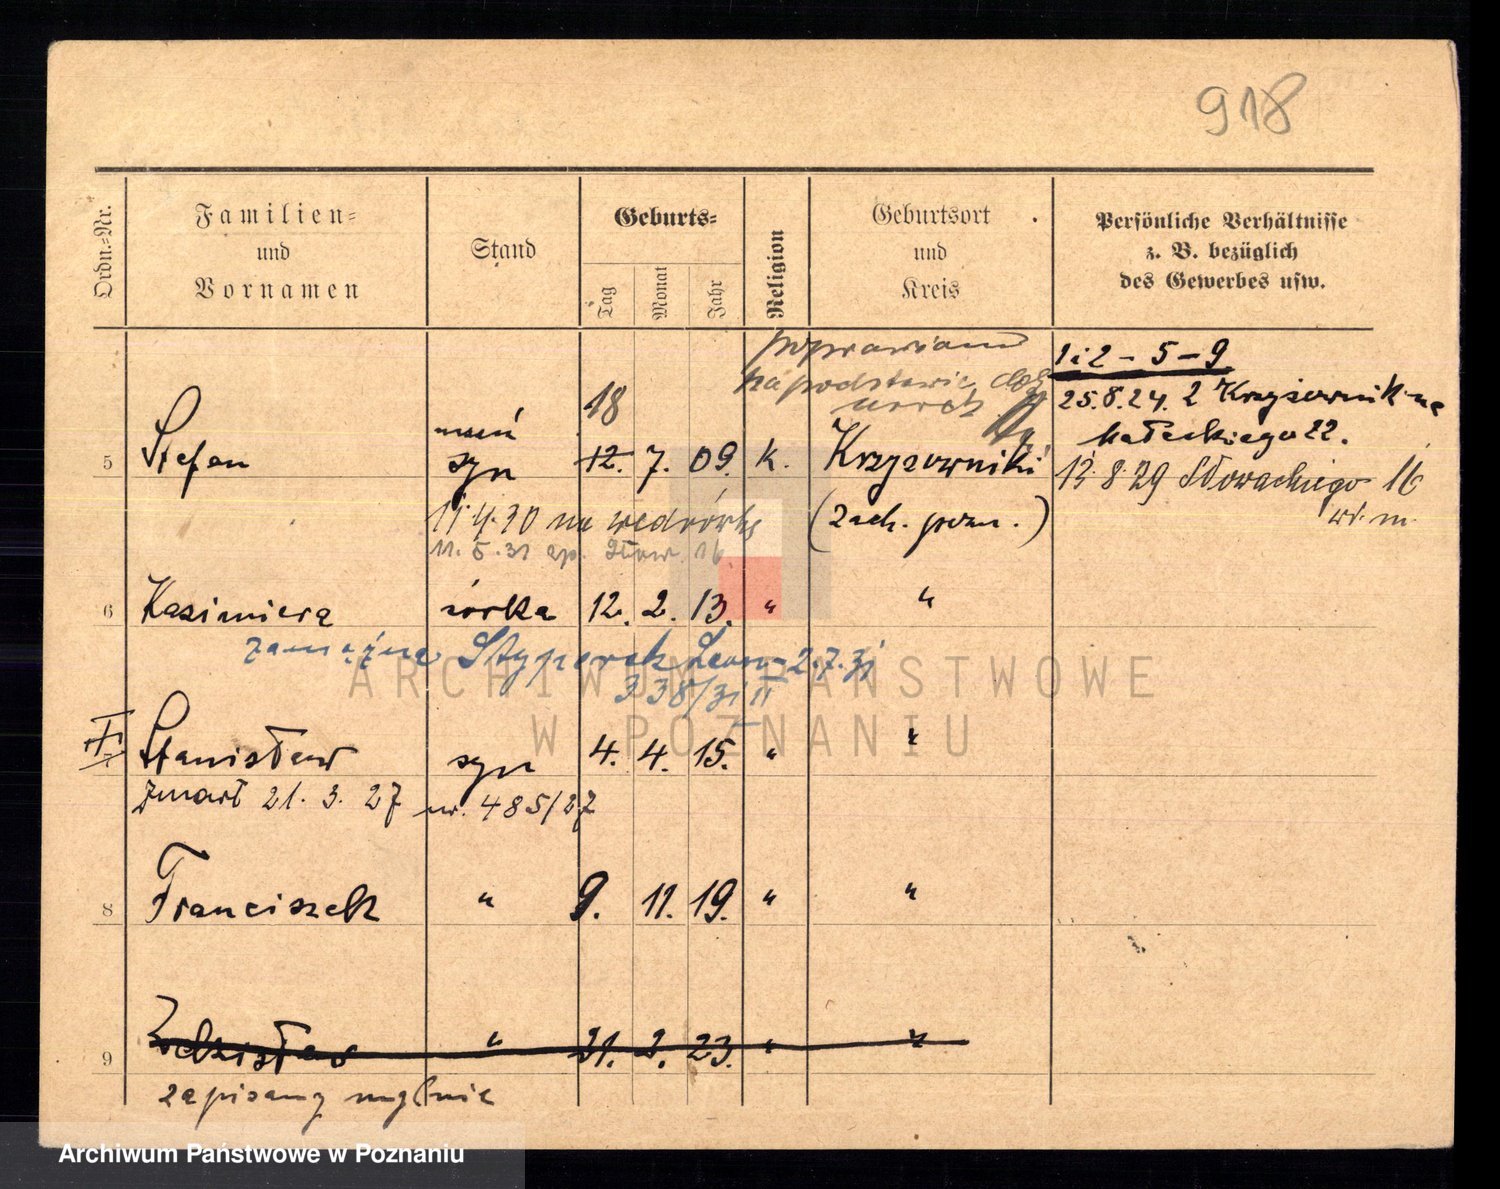 918
Ordn.=Nr.
Familien=
und
Vornamen
Stand
Geburts=
Tag
Monat
Jahr
Religion
Geburtsort
und
Kreis
Persönliche Verhältnisse
z. B. bezüglich
des Gewerbes usw.
poprawiano
na podstawie
1 i 2 - 5 - 9
25.8.24. 2 Krzyżownik na
Małeckiego 22.
13.8.29 Słowackiego 16
w. m.
18
5 Stefan syn 12. 7. 09. k. Krzyżowniki
(zach. pozn.)
11.4.30 na wędrówkę
11.5.31 zp. Słow. 16
6 Kazimiera córka 12. 2. 13. " "
zamężna Styperek Leon - 2.7.31
338/31 II
7 Stanisław syn 4. 4. 15. " "
zmarł 21. 3. 27 nr. 485/27
8 Franciszek " 9. 11. 19. " "
9 Zdzisław " 21. 2. 23. " "
zapisany mylnie
ARCHIWUM PAŃSTWOWE
W POZNANIU
Archiwum Państwowe w Poznaniu